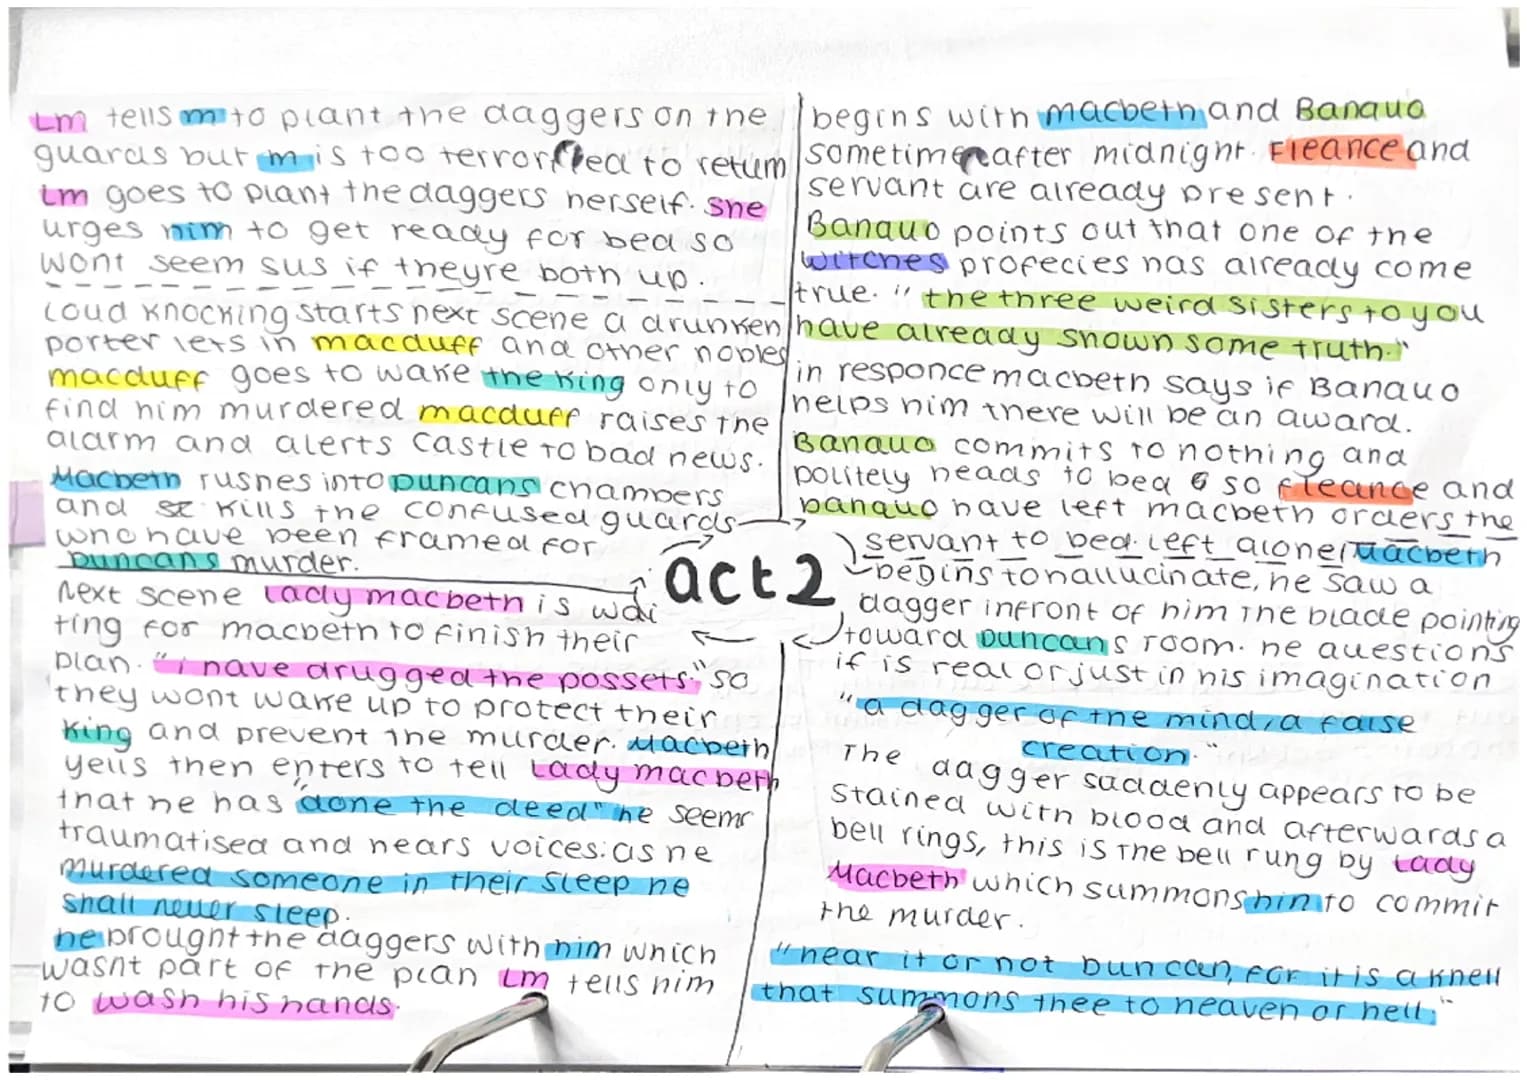 begins with macbeth and Banquo
sometime after midnight. Fleance and
servant are already present.
Banquo points out that one of the
witches profecies has already come
true. "the three weird sisters to you
have already shown some truth."
in responce macbeth says if Banquo
helps him there will be an award.
Banquo commits to nothing and
politely heads to bed so fleance and
banquo have left macbeth orders the
servant to bed. left alone, Macbeth
begins to hallucinate, he saw a
dagger infront of him the blade pointing
toward Duncans room. he questions
if is real or just in his imagination
"a dagger of the mind, a false
creation."
The dagger suddenly appears to be
stained with blood and afterwards a
bell rings, this is the bell rung by Lady
Macbeth which summons him to commit
the murder.
"hear it or not Duncan, for it is a knell
that summons thee to heaven or hell."
act 2
Next scene Lady macbeth is wai
ting for macbeth to finish their
plan. "i have drugged the possets." so
they wont wake up to protect their
king and prevent the murder. Macbeth
yells then enters to tell Lady macbeth
that he has "done the deed" he seems
traumatised and hears voices: as he
murdered someone in their sleep he
shall never sleep.
he brought the daggers with him which
wasnt part of the plan Lm tells him
to wash his hands.
Lm tells m to plant the daggers on the
guards but m is too terrorfied to return
Lm goes to plant the daggers herself. She
urges him to get ready for bed so
wont seem sus if theyre both up.
Loud knocking starts next scene a drunken
porter lets in macduff and other nobles
macduff goes to wake the king only to
find him murdered macduff raises the
alarm and alerts castle to bad news.
Macbeth rushes into Duncans chambers
and kills the confused guards
who have been framed for
Duncans murder.